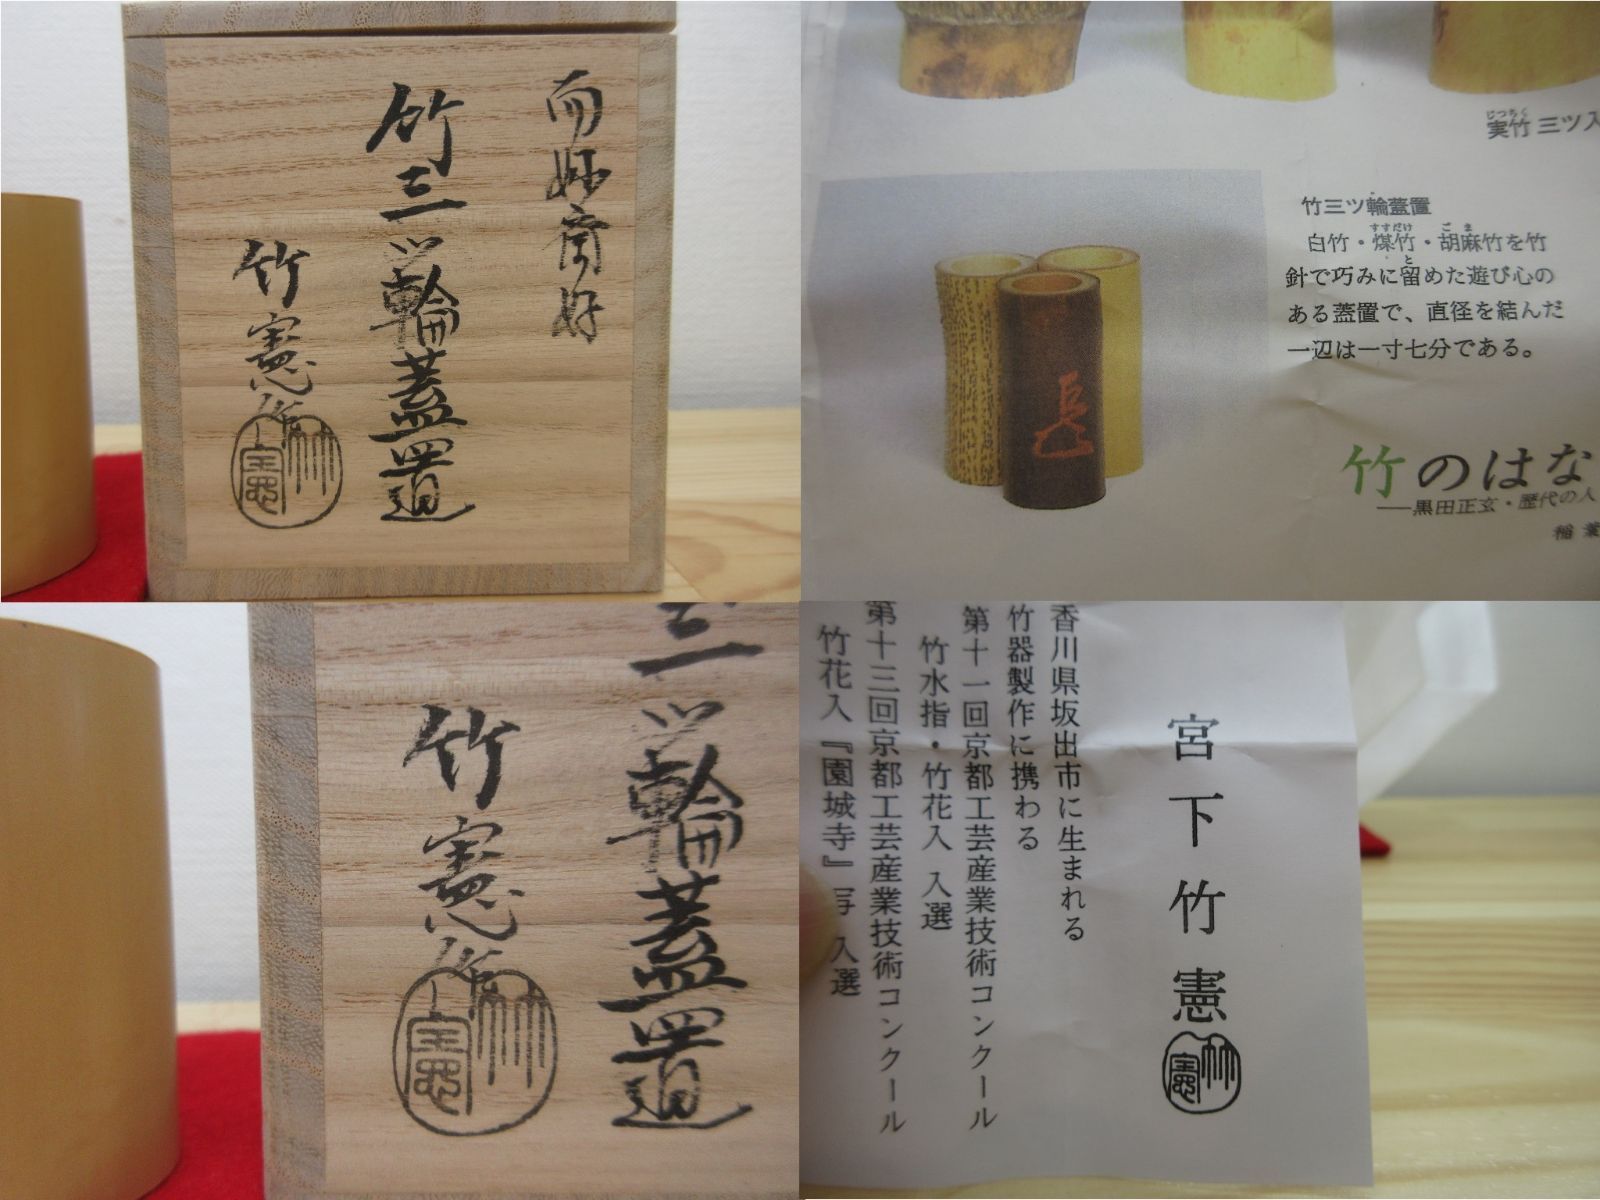 而妙斎好
竹三ツ輪蓋置
竹憲作
竹憲
じつちく
実竹 三ツ入
竹三ツ輪蓋置
すすだけ ごま
白竹・煤竹・胡麻竹を竹
と
針で巧みに留めた遊び心の
ある蓋置で、直径を結んだ
一辺は一寸七分である。
竹のはな
──黒田正玄・歴代の人
稲葉
三ツ輪蓋置
竹憲作
竹憲
宮下竹憲
竹憲
香川県坂出市に生まれる
竹器製作に携わる
第十一回京都工芸産業技術コンクール
竹水指・竹花入 入選
第十三回京都工芸産業技術コンクール
竹花入『園城寺』写 入選